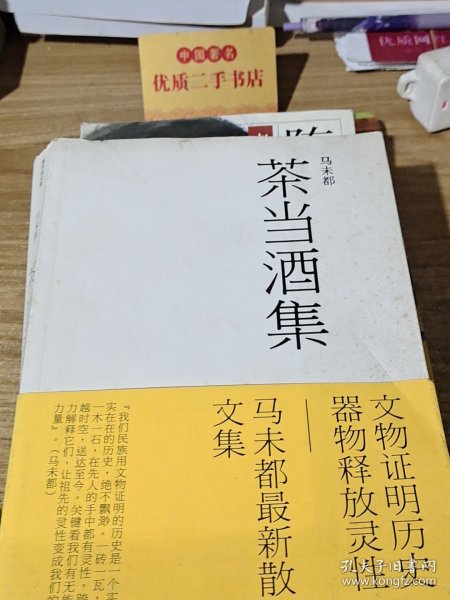 中国著名
优质二手书店
优质网红
马未都
茶当酒集
文物证明历史
器物释放灵性
——马未都最新散
文集
『我们民族用文物证明的历史是一个实
实在在的历史,绝不飘渺。一砖,瓦,
一木一石,在先人的手中都有灵性,跨
越时空,送达至今。关键看我们有无能
力解释它们,让祖先的灵性变成我们的
力量』。(马未都)
孔夫子旧书网